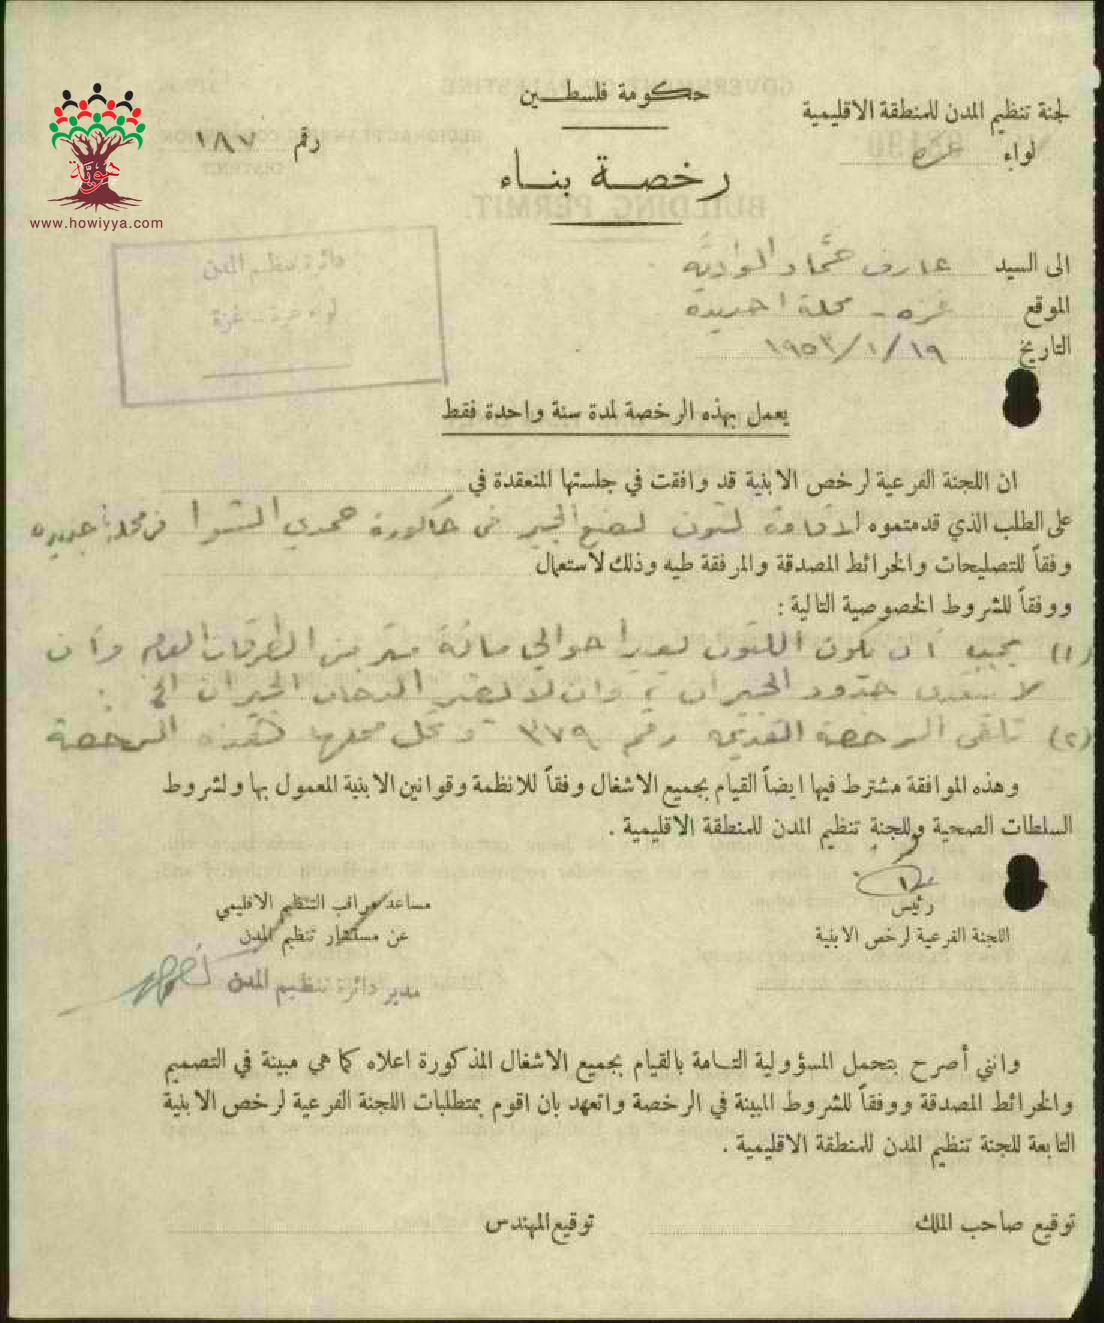 حكومة فلسطين
لجنة تنظيم المدن للمنطقة الاقليمية
لواء غزه
رقم ١٨٧
رخصة بناء
هويّة
www.howiyya.com
دائرة تنظيم المدن
لواء غزة - غزة
الى السيد عارف حمّاد الواديّه
الموقع غزه - محلة اجديده
التاريخ ١٩/١/١٩٥٣
يعمل بهذه الرخصة لمدة سنة واحدة فقط
ان اللجنة الفرعية لرخص الابنية قد وافقت في جلستها المنعقدة في
على الطلب الذي قدمتموه لاقامة لتون لصنع الجير في حاكورة حمدي الشوا في محلة اجديده
وفقاً للتصليحات والخرائط المصدقة والمرفقة طيه وذلك لاستعمال
ووفقاً للشروط الخصوصية التالية :
(١) يجب أن يكون اللتون بعيداً حوالي مائة متر عن الطرقات العام وأن
لا يتعدى حدود الجيران وان لا يضر الدخان الجيران الخ :
(٢) تلغى الرخصة القديمه رقم ٣٧٩ وتحل محلها هذه الرخصة
وهذه الموافقة مشترط فيها ايضاً القيام بجميع الاشغال وفقاً للانظمة وقوانين الابنية المعمول بها ولشروط
السلطات الصحية وللجنة تنظيم المدن للمنطقة الاقليمية .
رئيس
اللجنة الفرعية لرخص الابنية
مساعد مراقب التنظيم الاقليمي
عن مستشار تنظيم المدن
مدير دائرة تنظيم المدن
وانني أصرح بتحمل المسؤولية التامة بالقيام بجميع الاشغال المذكورة اعلاه كما هي مبينة في التصميم
والخرائط المصدقة ووفقاً للشروط المبينة في الرخصة واتعهد بان اقوم بمتطلبات اللجنة الفرعية لرخص الابنية
التابعة للجنة تنظيم المدن للمنطقة الاقليمية .
توقيع صاحب الملك
توقيع المهندس